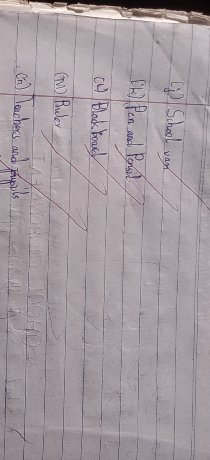 (i) School van
(ii) Pen and Pencil
(iii) Black board
(iv) Ruler
(v) Teachers and pupils